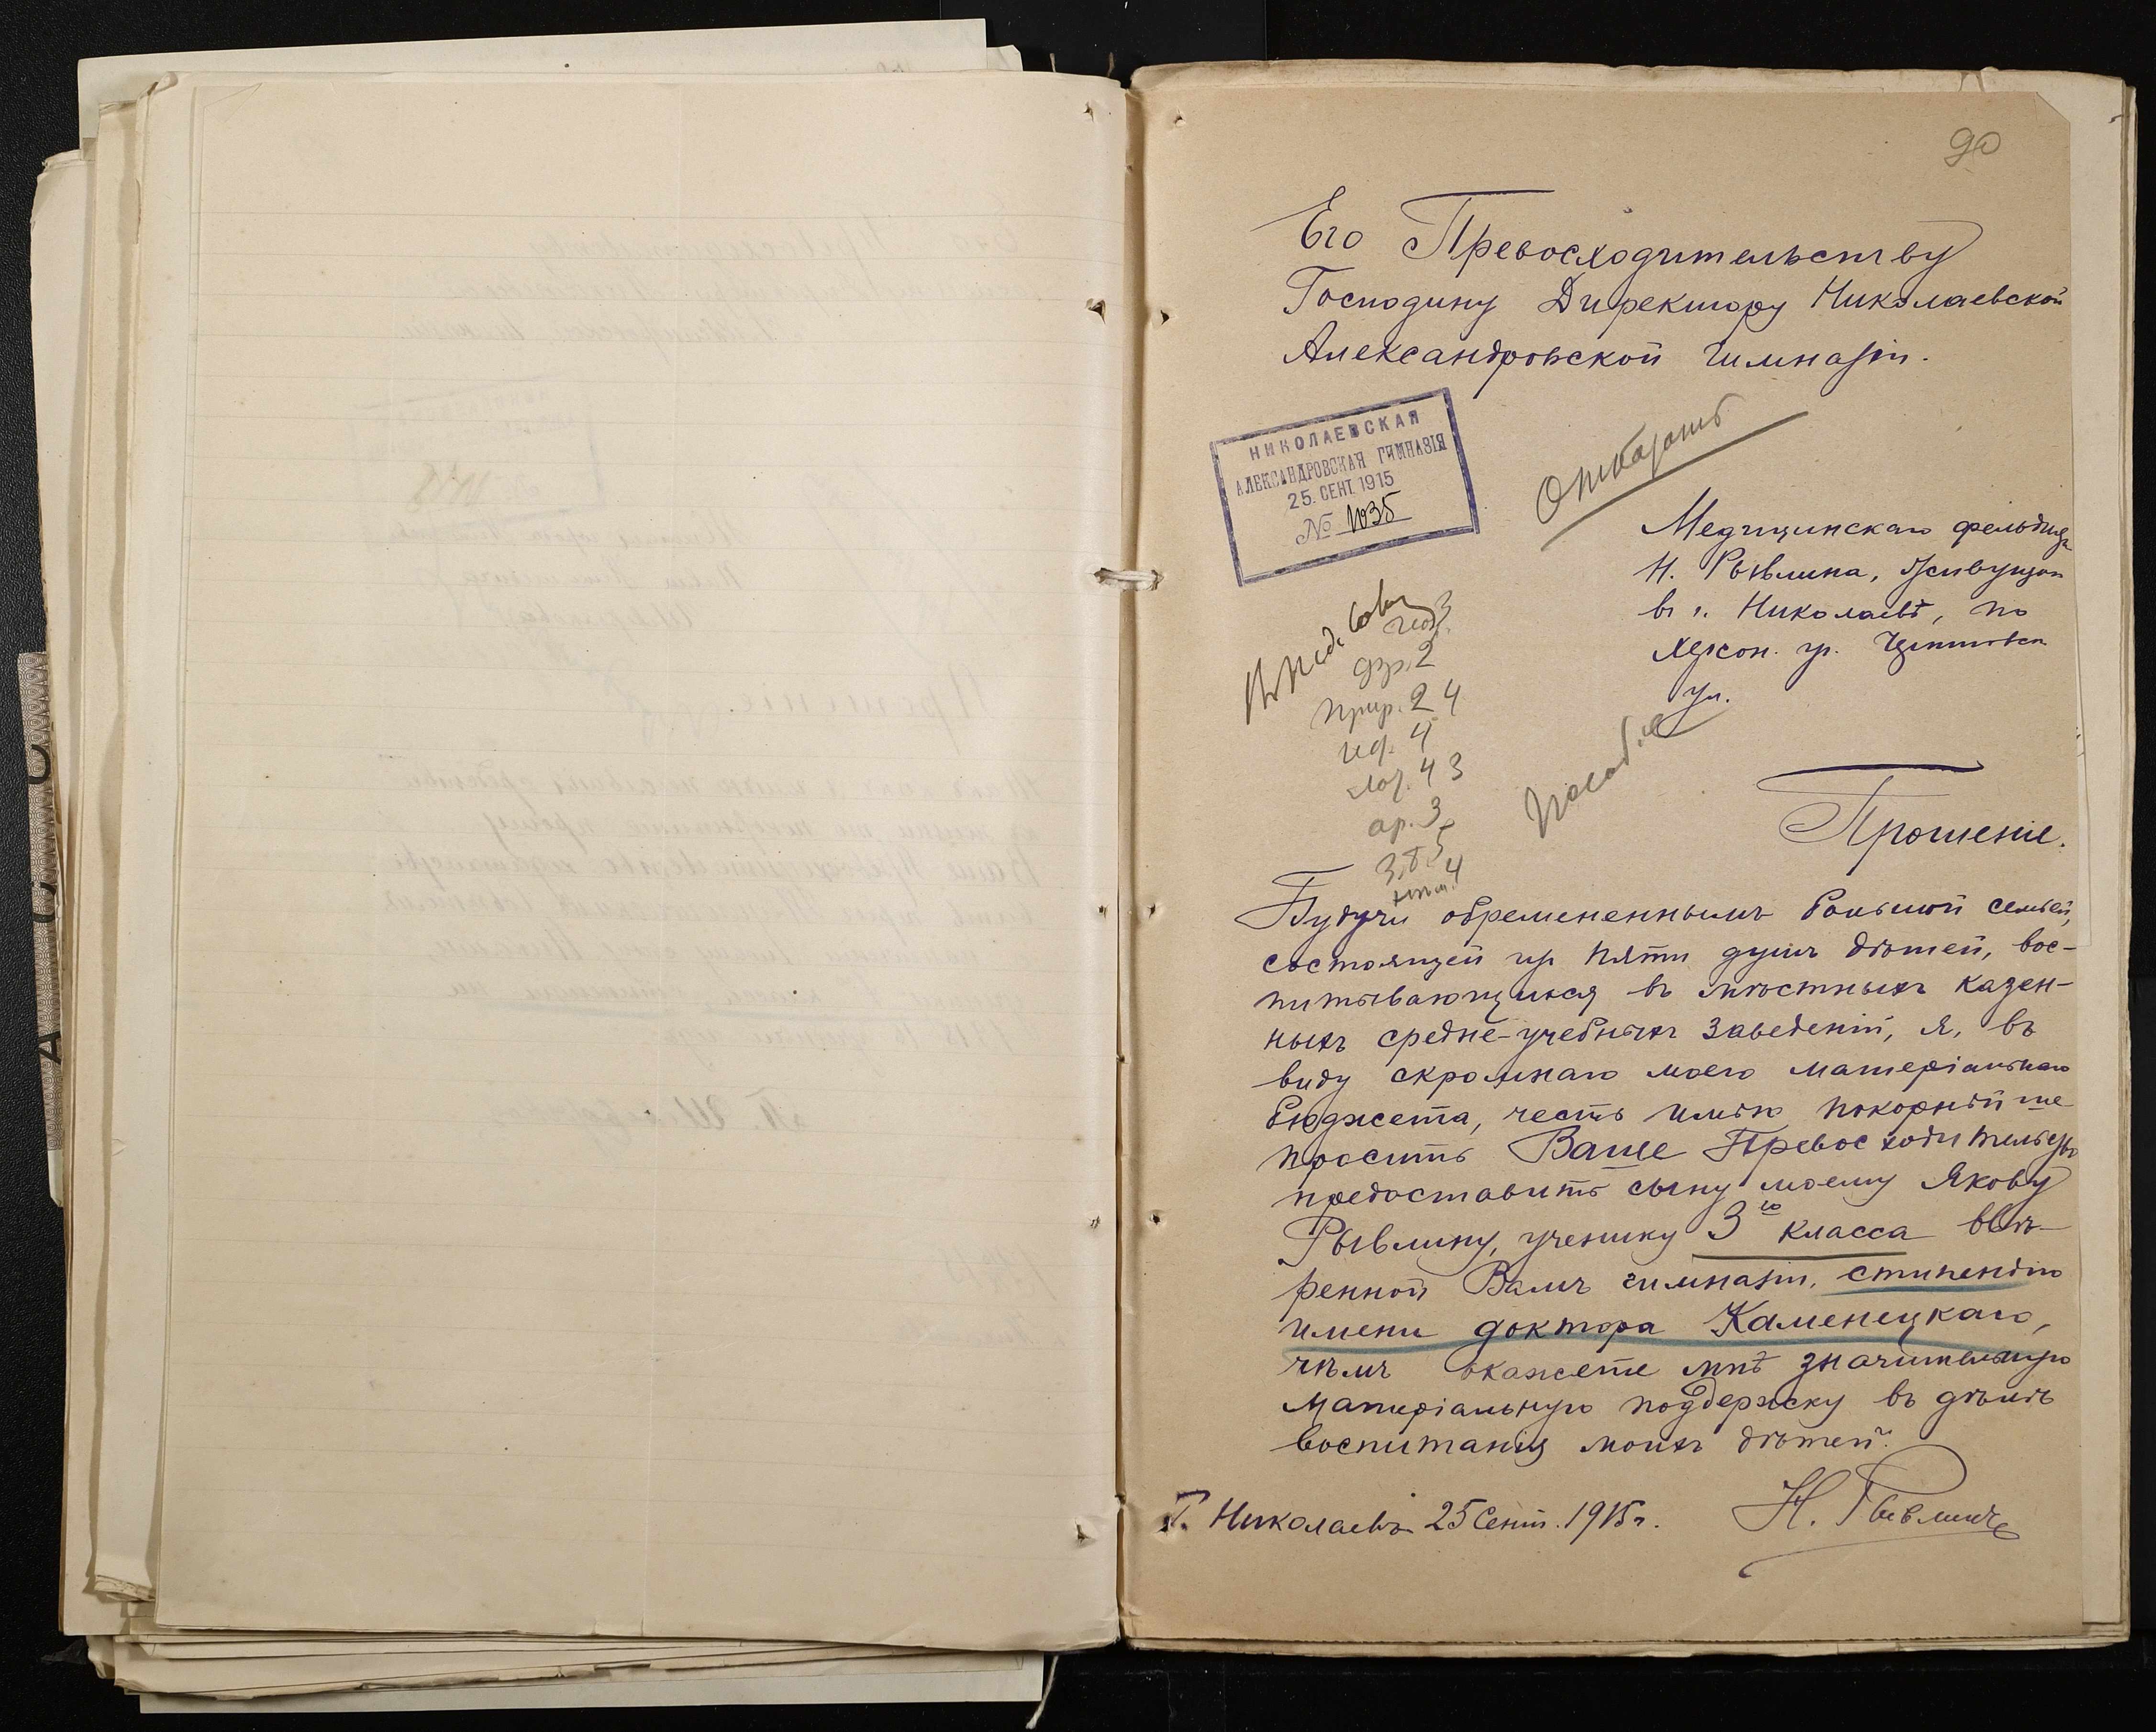 90
Его Превосходительству
Господину Директору Николаевской
Александровской Гимназіи.
НИКОЛАЕВСКАЯ
АЛЕКСАНДРОВСКАЯ ГИМНАЗІЯ
25. СЕНТ. 1915
№ 1035
Отказать
Медицинскаго фельдшера
Н. Рывлина, живущаго
въ г. Николаевѣ, по
ул.
Въ Пед. Сов.
3
фр. 2
прир. 2 4
нѣ. 4
лат. 4 3
ар. 3
З.Б. 5
4
Пособіе
Прошеніе.
Будучи обремененнымъ большой семьей,
состоящей изъ пяти душъ дѣтей, вос-
питывающихся въ мѣстныхъ казен-
ныхъ средне-учебныхъ заведеній, я, въ
виду скромнаго моего матеріальнаго
бюджета, честь имѣю покорнѣйше
просить Ваше Превосходительство
предоставить сыну моему Якову
Рывлину, ученику 3го класса ввѣ-
ренной Вамъ гимназіи, стипендію
имени доктора Каменецкаго,
чѣмъ окажете мнѣ значительную
матеріальную поддержку въ дѣлѣ
воспитанія моихъ дѣтей.
Г. Николаевъ 25 Сент. 1915 г. Н. Рывлинъ